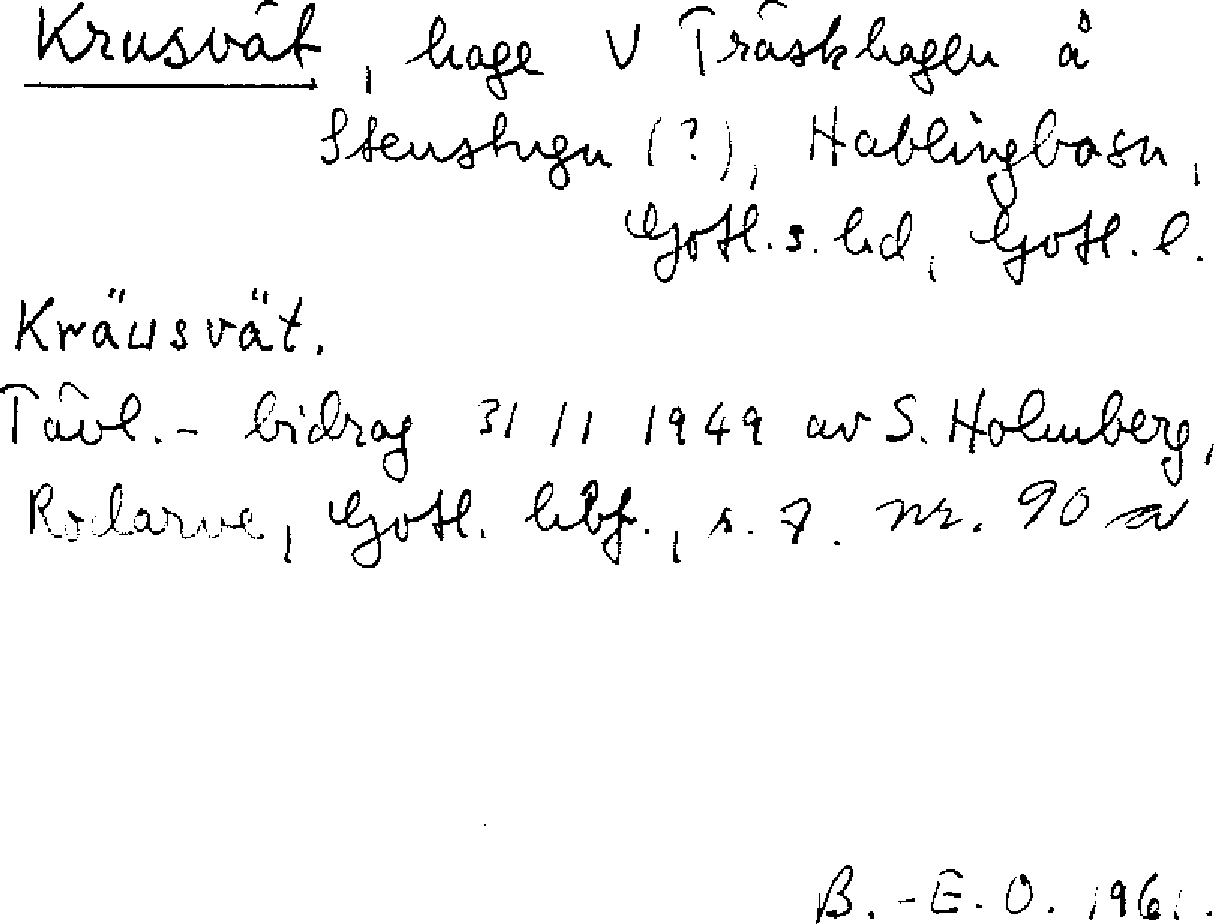 Krusvät, hage V Träskhagen å
Stenstugu (?), Hablingbosn,
Gotl. s. hd, Gotl. l.
Kräusvät.
Tävl.- bidrag 31/1 1949 av S. Holmberg,
Rodarve, Gotl. hbf., s. 7. nr. 90 a
B.-E. O. 1961.